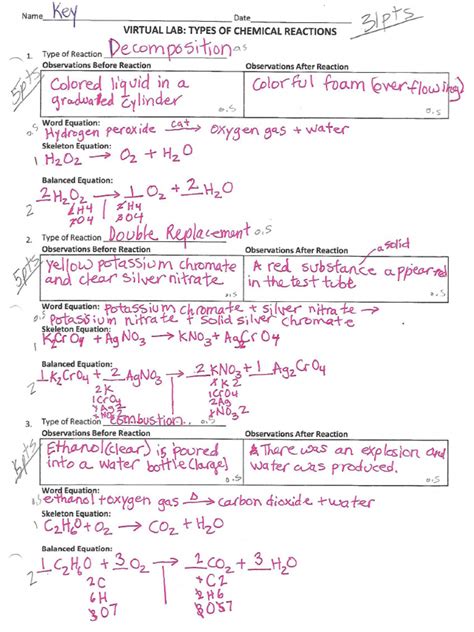 Name Key Date 31pts
VIRTUAL LAB: TYPES OF CHEMICAL REACTIONS
1. Type of Reaction Decomposition 0.5
5pts
Observations Before Reaction Observations After Reaction
Colored liquid in a graduated cylinder
Colorful foam (overflowing)
0.5 0.5
0.5 Word Equation:
Hydrogen peroxide cat→ oxygen gas + water
Skeleton Equation:
1 H2O2 → O2 + H2O
Balanced Equation:
2 2 H2O2 → 1 O2 + 2 H2O
2. Type of Reaction Double Replacement 0.5
5pts
Observations Before Reaction Observations After Reaction
yellow potassium chromate
and clear silver nitrate 0.5
a solid
A red substance appeared
in the test tube 0.5
Word Equation: Potassium chromate + silver nitrate →
0.5 Potassium nitrate + solid silver chromate
Skeleton Equation:
1 K2CrO4 + AgNO3 → KNO3 + Ag2CrO4
Balanced Equation:
2 1 K2CrO4 + 2 AgNO3 → 2 KNO3 + 1 Ag2CrO4
2K
1CrO4
3. Type of Reaction combustion 0.5
5pts
Observations Before Reaction Observations After Reaction
Ethanol (clear) is poured
into a water bottle (large) 0.5
There was an explosion and
water was produced. 0.5
Word Equation:
0.5 ethanol + oxygen gas Δ→ carbon dioxide + water
Skeleton Equation:
1 C2H6O + O2 → CO2 + H2O
Balanced Equation:
2 1 C2H6O + 3 O2 → 2 CO2 + 3 H2O
2C
6H